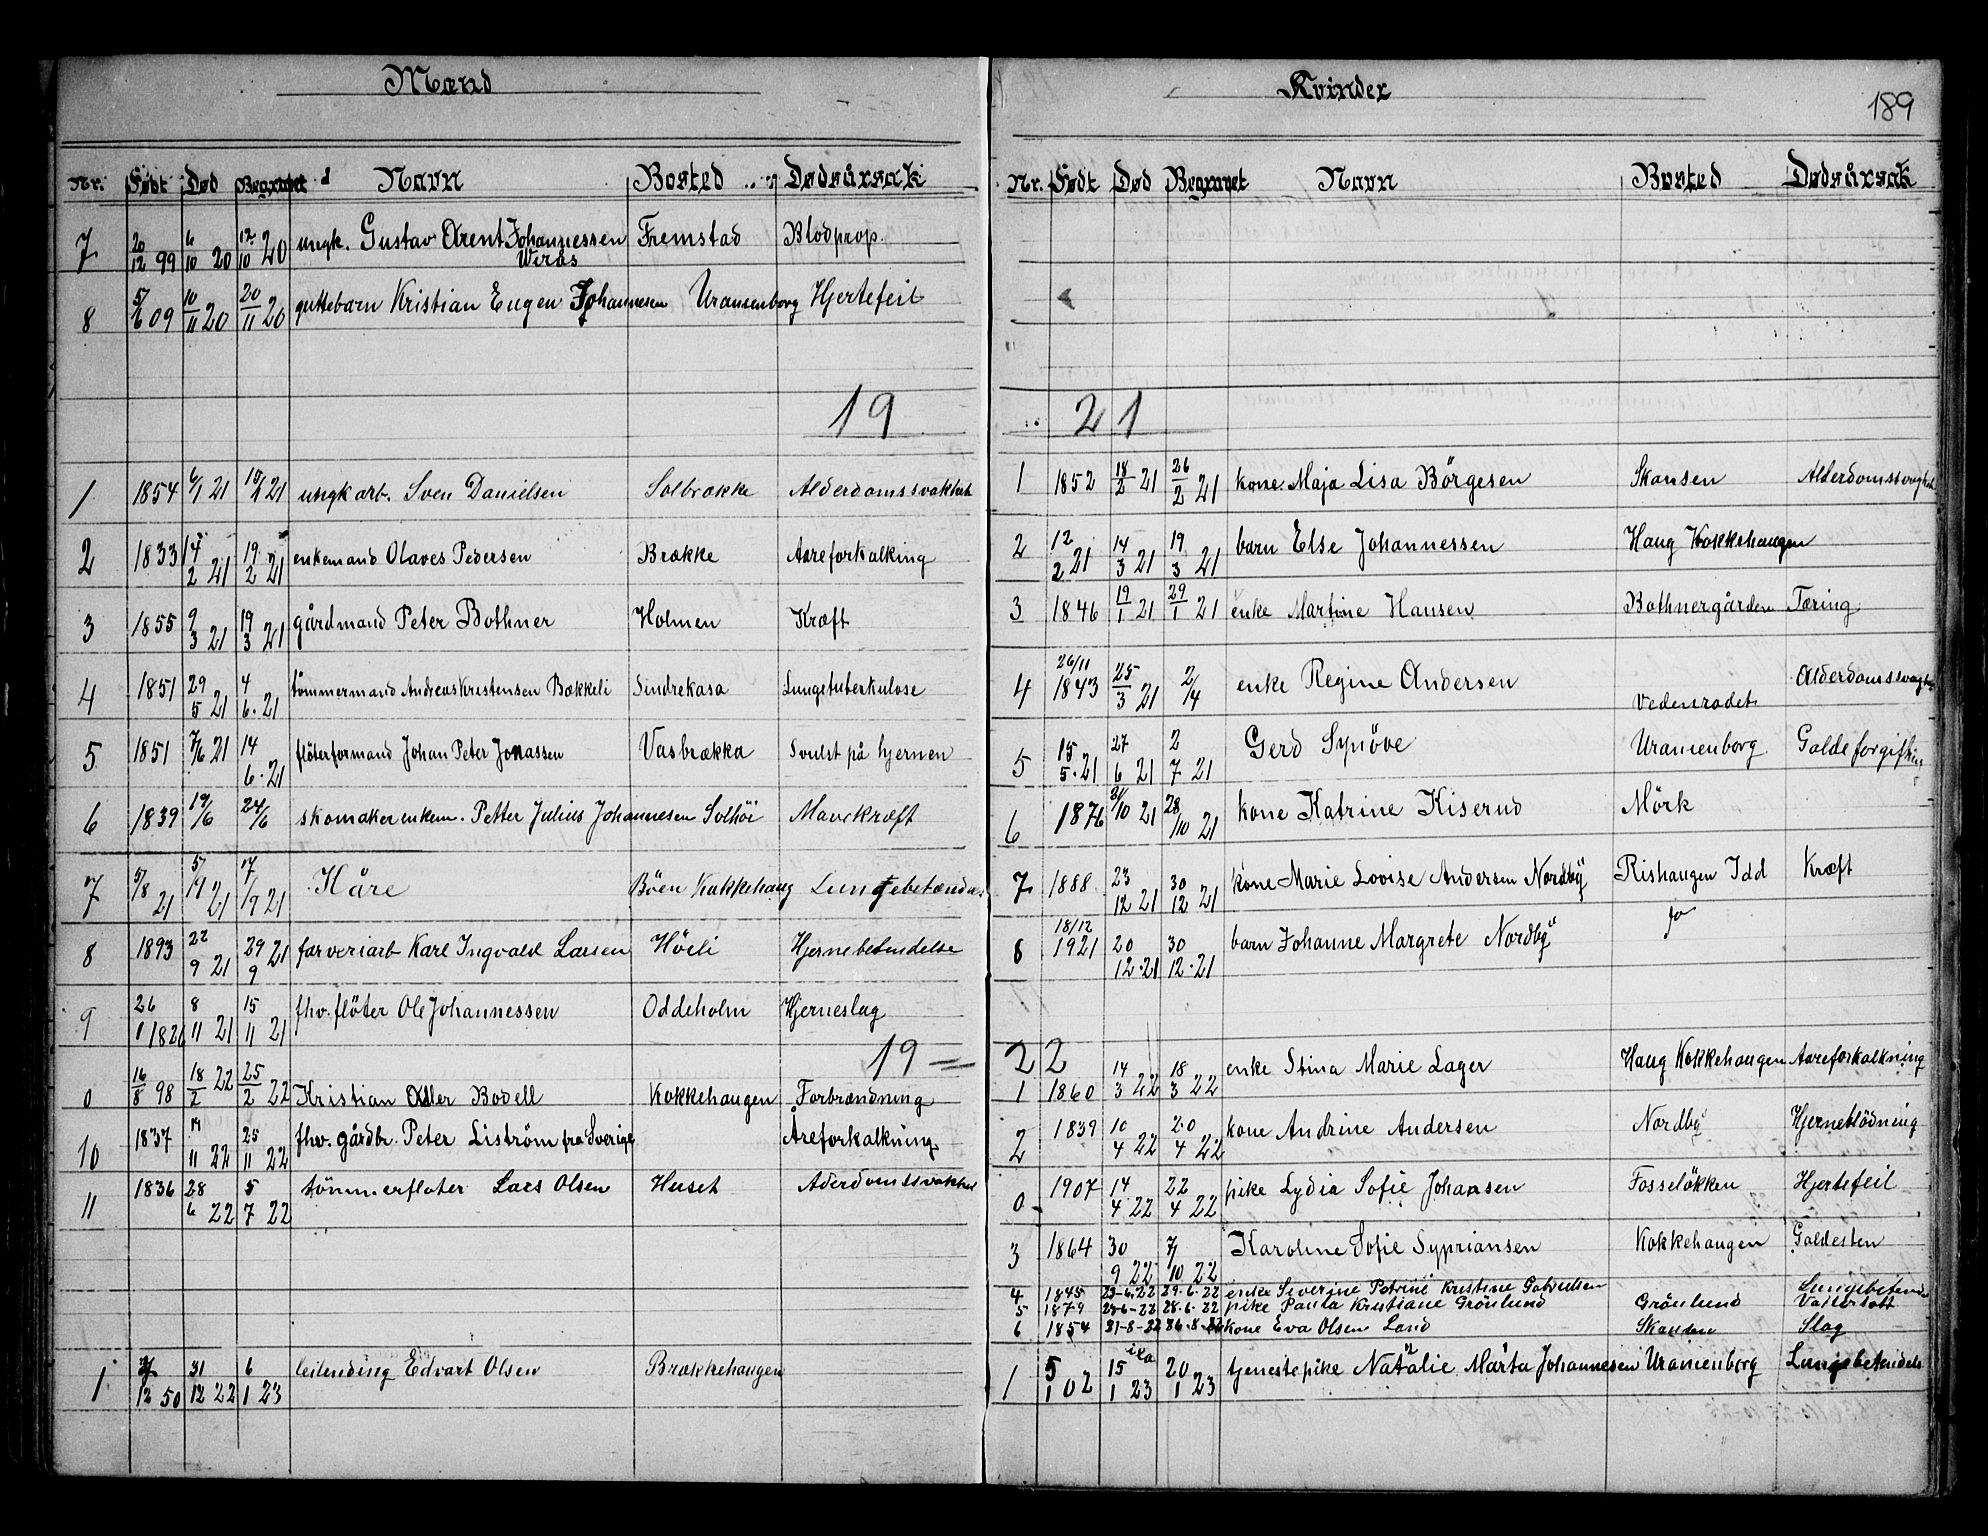 Mænd
Nr. Født Død Begravet Navn Bosted Dødsårsak
7 20/12 99 6/10 20 12/10 20 ungk. Gustav Arent Johannessen Fremstad Blodprop.
Werås
8 5/6 09 10/11 20 20/11 20 guttebarn Kristian Eugen Johannesen Uransenborg Hjertefeil
19
1 1854 6/1 21 21 ungkarb. Sven Danielsen Solbrække Alderdomssvakhet
2 1833 14/2 21 19/2 21 enkemand Olaves Pedersen Brække Aareforkalking
3 1855 9/3 21 19/3 21 gårdmand Peter Bothner Holmen Kræft
4 1851 29/5 21 4/6 21 tömmermand Andreas Kristensen Bækkeli Sindrekasa Lungetuberkulose
5 1851 7/6 21 14/6 21 flöterformand Johan Peter Jonassen Vasbrække Svulst på hjernen
6 1839 19/6 24/6 skomaker enkem. Petter Julius Johannesen Solhöi Mavekræft
7 5/8 21 21 17/9 21 Kåre Böen Kokkehaug Lungebetændels
8 1893 22/9 21 29/9 21 farveriarb Karl Ingvald Larsen Höili Hjernebetendelse
9 26/1 1826 8/11 21 15/11 21 fhv. flöter Ole Johannessen Oddeholm Hjerneslag
19
0 16/8 98 18/2 22 25/2 22 Kristian Adler Bodell Kokkehaugen Forbrændning
10 1837 17/11 22 25/11 22 fhv. gårdbr. Peter Liström fra Sverige Åreforkalkning
11 1836 28/6 22 5/7 22 tömmerfloter Lars Olsen Huset Aderdomssvakhet
1 12 50 31/12 22 6/1 23 leilending Edvart Olsen Brækkehaugen
Kvinder
189
Nr. Født Død Begravet Navn Bosted Dødsårsak
21
1 1852 18/2 21 26/2 21 kone Maja Lisa Börgesen Skansen Alderdomssvaghed
2 12/2 21 14/3 21 19/3 21 barn Else Johannessen Haug Kokkehaugen
3 1846 19/1 21 29/1 21 enke Martine Hansen Bothnergården Tæring
4 26/11 1843 25/3 21 2/4 enke Regine Andersen Vedenrodet Alderdomssvaghed
5 15/5 21 27/6 21 2/7 21 Gerd Synöve Uranienborg Galdeforgiftning
6 1876 21/10 21 28/10 21 kone Katrine Kiserud Mörk
7 1888 23/12 21 30/12 21 kone Marie Lovise Andersen Nordby Rishaugen Idd Kræft
8 18/12 1921 20/12 21 30/12 21 barn Johanne Margrete Nordby
22
1 1860 14/3 22 18/3 22 enke Stina Marie Lager Haug Kokkehaugen Aareforkalkning
2 1839 10/4 22 20/4 22 kone Andrine Andersen Nordby Hjerneblödning
0 1907 14/4 22 22/4 22 pike Lydia Sofie Johansen Fosselökken Hjertefeil
3 1864 30/9 22 7/10 22 Karoline Sofie Sypriansen Kokkehaugen Galdesten
4 1845 23-6.22 29.6.22 enke Severine Petrine Kristine Gabrielsen Lungebetende
5 1879 23-6-22 28.6.22 pike Paula Kristiane Grönlund Grönlund
6 1854 31-8-22 kone Eva Olsen Land Skansen Slag
1 5/1 02 15/1 23 20/1 23 tjenestepike Natalie Marta Johannesen Uranienborg Lungebetendels